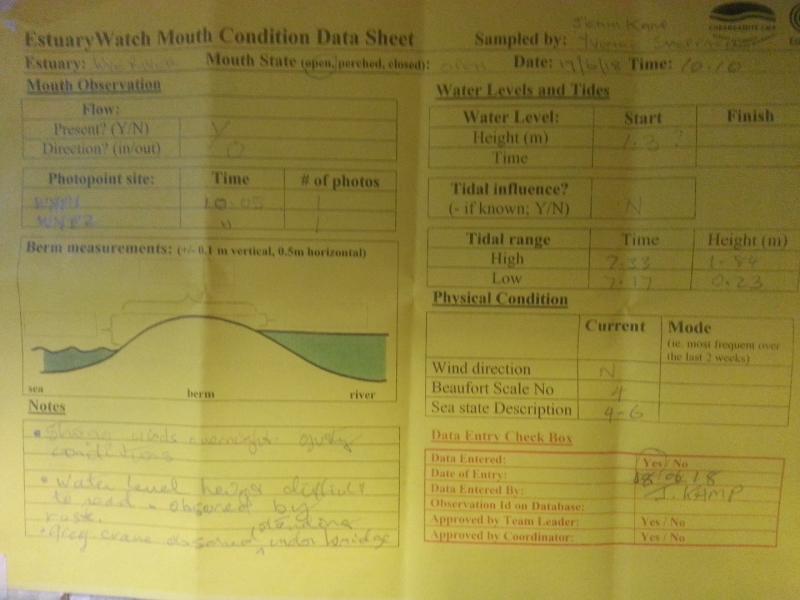 EstuaryWatch Mouth Condition Data Sheet
Sampled by: Yvonne
Estuary: Wye River Mouth State (open, perched, closed): open Date: 17/6/18 Time: 10.10
Mouth Observation
Flow:
Present? (Y/N) Y
Direction? (in/out) O
Photopoint site: Time # of photos
WYP1 10.05 1
WYP2 " 1
Berm measurements: (+/- 0.1 m vertical, 0.5m horizontal)
sea berm river
Notes
• Strong winds overnight gusty
conditions
• Water level height difficult
to read - obscured by
rust.
• Grey crane observed standing under bridge
Water Levels and Tides
Water Level: Start Finish
Height (m) 1.3 ?
Time
Tidal influence?
(- if known; Y/N) N
Tidal range Time Height (m)
High 2.33 1.84
Low 7.17 0.23
Physical Condition
Current Mode
(ie. most frequent over
the last 2 weeks)
Wind direction N
Beaufort Scale No 4
Sea state Description 4-6
Data Entry Check Box
Data Entered: Yes / No
Date of Entry: 18/06/18
Data Entered By: J. KAMP
Observation Id on Database:
Approved by Team Leader: Yes / No
Approved by Coordinator: Yes / No